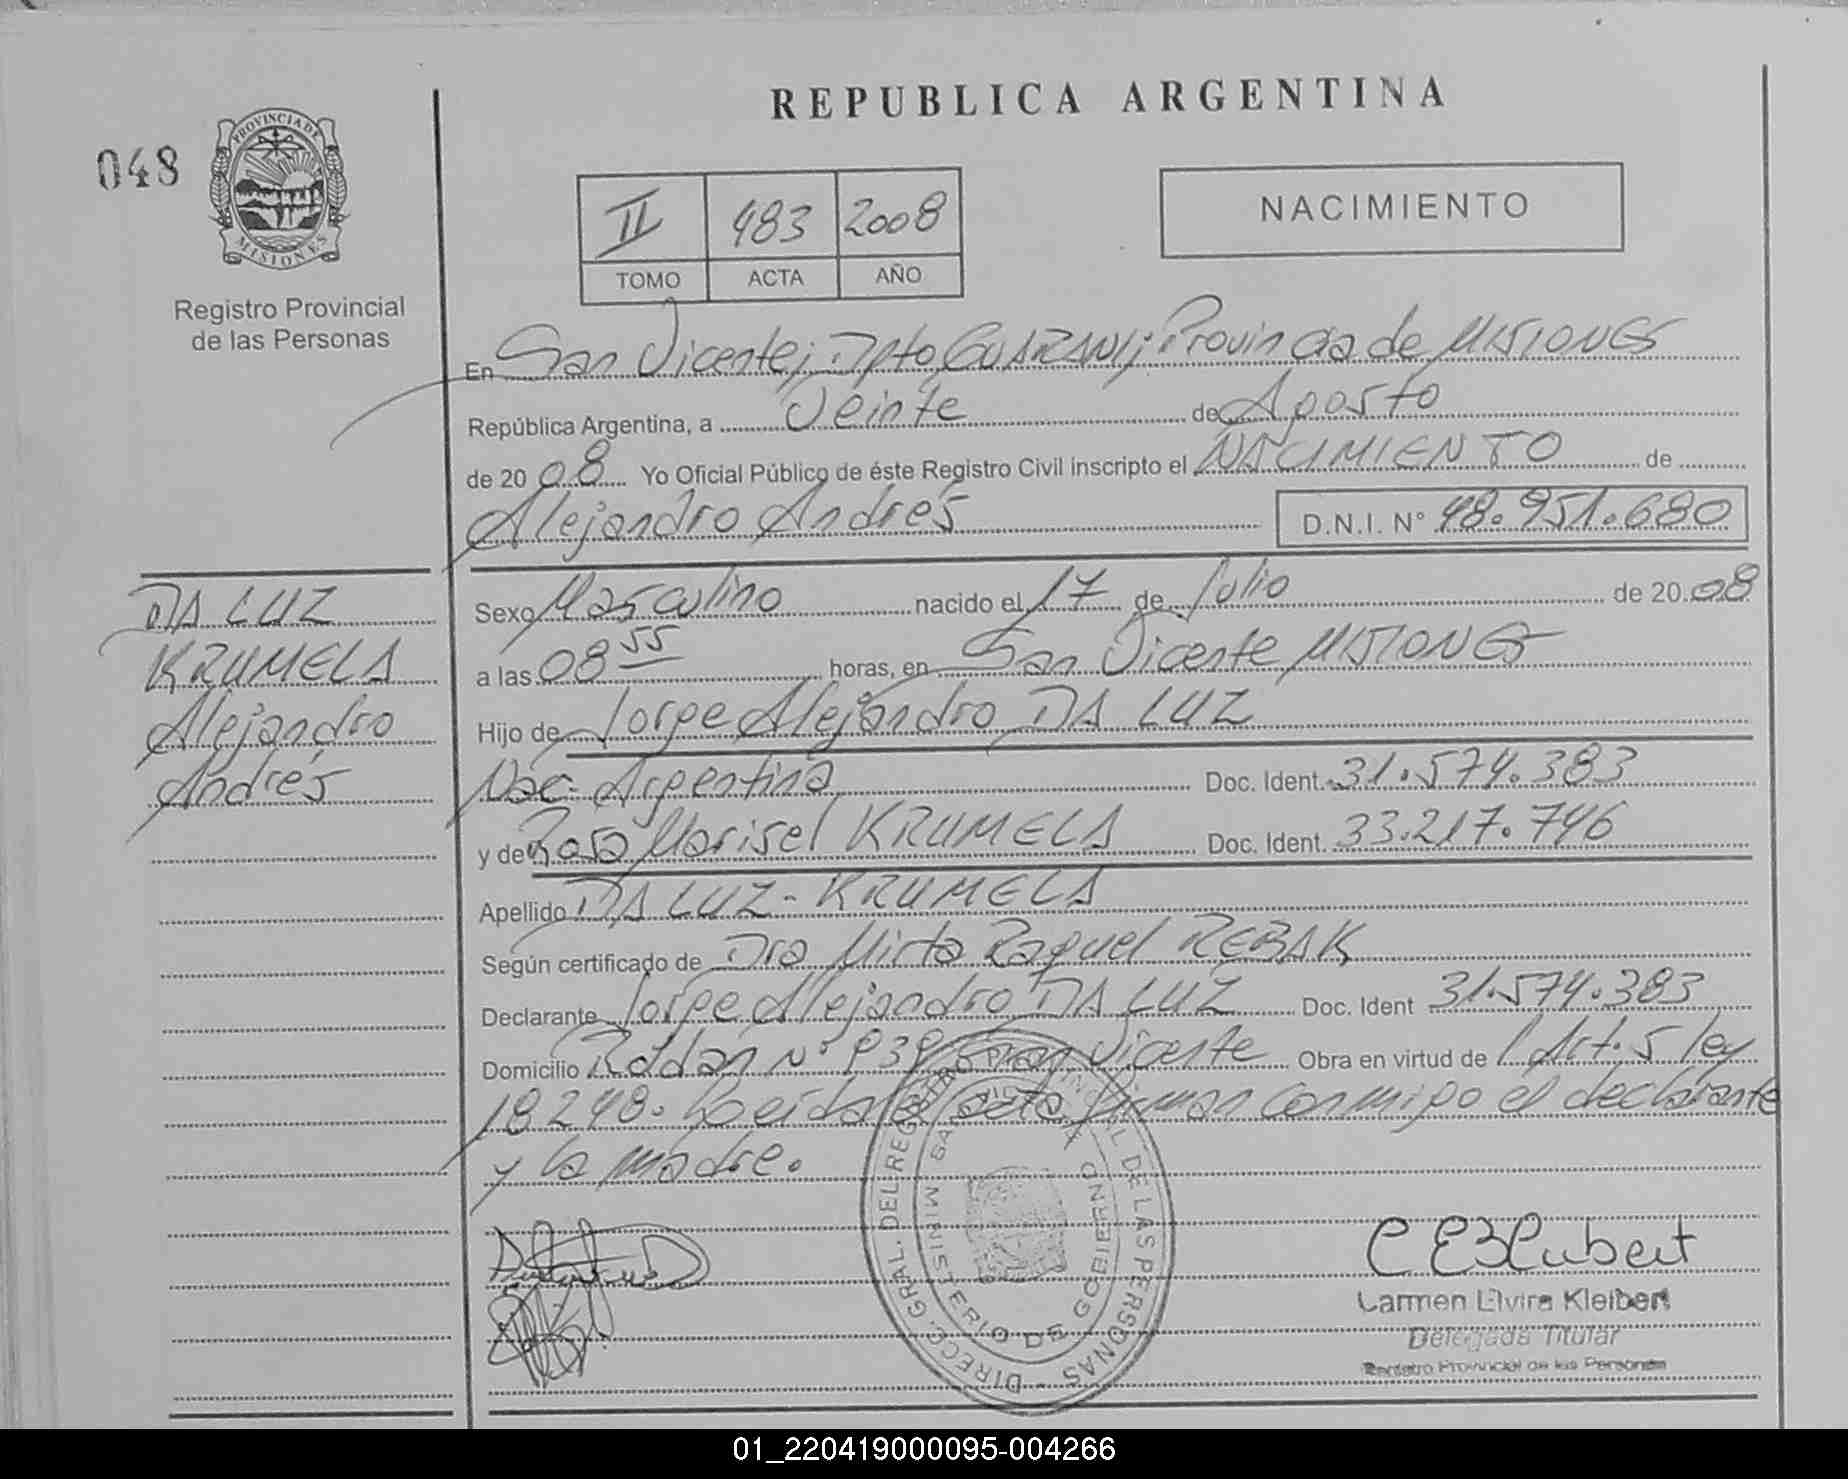 REPUBLICA ARGENTINA
048
PROVINCIA DE
MISIONES
Registro Provincial
de las Personas
II 483 2008
TOMO ACTA AÑO
NACIMIENTO
En San Vicente; Dpto GUARANI; Provincia de MISIONES
República Argentina, a Veinte de Agosto
de 2008 Yo Oficial Público de éste Registro Civil inscripto el NACIMIENTO de
Alejandro Andrés D.N.I. N° 48.951.680
DA LUZ
KRUMELA
Alejandro
Andrés
Sexo Masculino nacido el 17 de Julio de 2008
a las 08 55 horas, en San Vicente MISIONES
Hijo de Jorge Alejandro DA LUZ
Nac. Argentina Doc. Ident. 31.574.383
y de Rosa Marisel KRUMELA Doc. Ident. 33.217.746
Apellido DA LUZ - KRUMELA
Según certificado de Dra Mirta Raquel REBAK
Declarante Jorge Alejandro DA LUZ Doc. Ident 31.574.383
Domicilio Roldan N° San Vicente Obra en virtud de Art. 5 ley
18248. Leída el acta firman conmigo el declarante
y la madre.
DIRECC. GRAL. DEL REGISTRO PROVINCIAL DE LAS PERSONAS
MINISTERIO DE GOBIERNO
C E Kleibert
Carmen Elvira Kleibert
Delegada Titular
Registro Provincial de las Personas
01_220419000095-004266